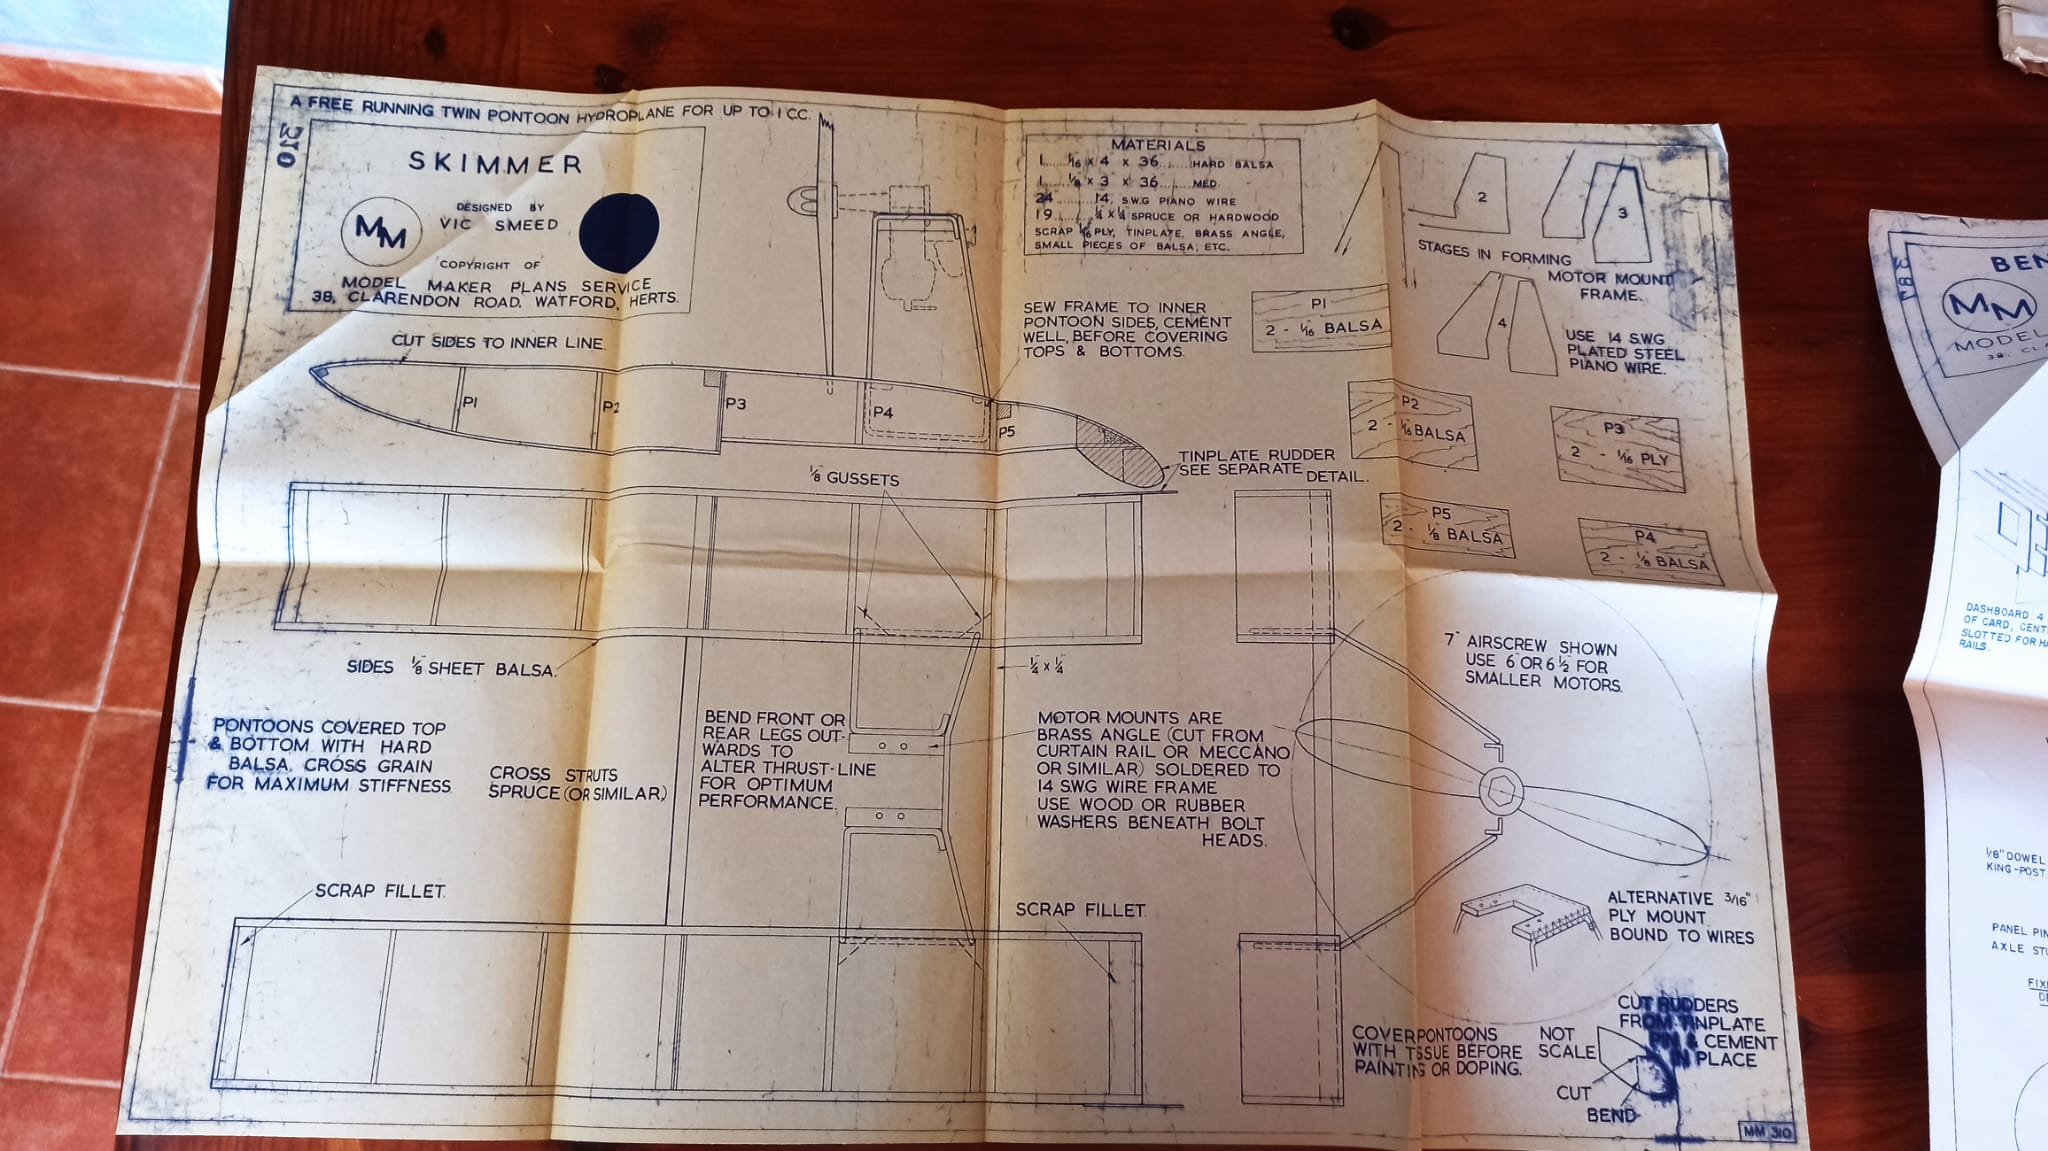 A FREE RUNNING TWIN PONTOON HYDROPLANE FOR UP TO 1 CC.
310
SKIMMER
MM
DESIGNED BY
VIC SMEED
COPYRIGHT OF
MODEL MAKER PLANS SERVICE
38, CLARENDON ROAD, WATFORD, HERTS.
MATERIALS
1..... 1/16 x 4" x 36"..... HARD BALSA
1..... 1/8" x 3" x 36"..... MED.
24"....... 14. S.W.G PIANO WIRE
19....... 1/4" x 1/4" SPRUCE OR HARDWOOD
SCRAP 1/16" PLY, TINPLATE, BRASS ANGLE,
SMALL PIECES OF BALSA, ETC.
1
2
3
STAGES IN FORMING
MOTOR MOUNT
FRAME.
4
USE 14 S.W.G
PLATED STEEL
PIANO WIRE.
SEW FRAME TO INNER
PONTOON SIDES, CEMENT
WELL, BEFORE COVERING
TOPS & BOTTOMS.
P1
2 - 1/16" BALSA
P2
2 - 1/16" BALSA
P3
2 - 1/16" PLY
P5
2 - 1/8" BALSA
P4
2 - 1/8" BALSA
CUT SIDES TO INNER LINE.
P1
P2
P3
P4
P5
TINPLATE RUDDER
SEE SEPARATE
DETAIL.
1/8" GUSSETS
SIDES 1/8" SHEET BALSA.
1/4" x 1/4"
7" AIRSCREW SHOWN
USE 6" OR 6 1/2" FOR
SMALLER MOTORS.
PONTOONS COVERED TOP
& BOTTOM WITH HARD
BALSA. CROSS GRAIN
FOR MAXIMUM STIFFNESS
CROSS STRUTS
SPRUCE (OR SIMILAR)
BEND FRONT OR
REAR LEGS OUT-
WARDS TO
ALTER THRUST-LINE
FOR OPTIMUM
PERFORMANCE.
MOTOR MOUNTS ARE
BRASS ANGLE (CUT FROM
CURTAIN RAIL OR MECCANO
OR SIMILAR) SOLDERED TO
14 SWG WIRE FRAME
USE WOOD OR RUBBER
WASHERS BENEATH BOLT
HEADS.
SCRAP FILLET.
SCRAP FILLET.
ALTERNATIVE 3/16"
PLY MOUNT
BOUND TO WIRES
COVER PONTOONS
WITH TISSUE BEFORE
PAINTING OR DOPING.
NOT
SCALE
CUT RUDDERS
FROM TINPLATE
PIN & CEMENT
IN PLACE
CUT
BEND
MM 310
387
BEN
MM
MODEL
38, CLA
DASHBOARD 4
OF CARD, CENT
SLOTTED FOR HA
RAILS.
1/8" DOWEL
KING-POST
PANEL PIN
AXLE STU
FIXI
DE